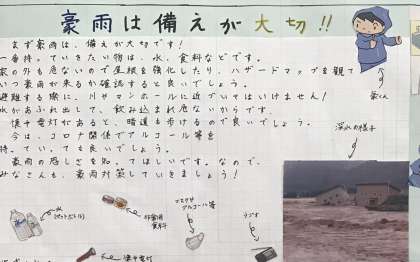 豪雨は備えが大切!!
まず豪雨は、備えが大切です!
一番持っていきたい物は、水、食料などです。
家の外も危ないので屋根を強化したり、ハザードマップを観て
いつ豪雨が来るか確認すると良いでしょう。
避難する際に、川やマンホールに近づいてはいけません!
水があふれ出して、飲み込まれ危ないからです。
懐中電灯があると、暗道も歩けるので良いでしょう。
今は、コロナ関係でアルコール等を
持っていても良いでしょう。
豪雨の恐しさを知ってほしいです。なので、
みなさんも、豪雨対策していきましょう!
洪水の様子
(ペットボトル)
非常用
食料
マスクや
アルコール等
ラジオ
懐中電灯